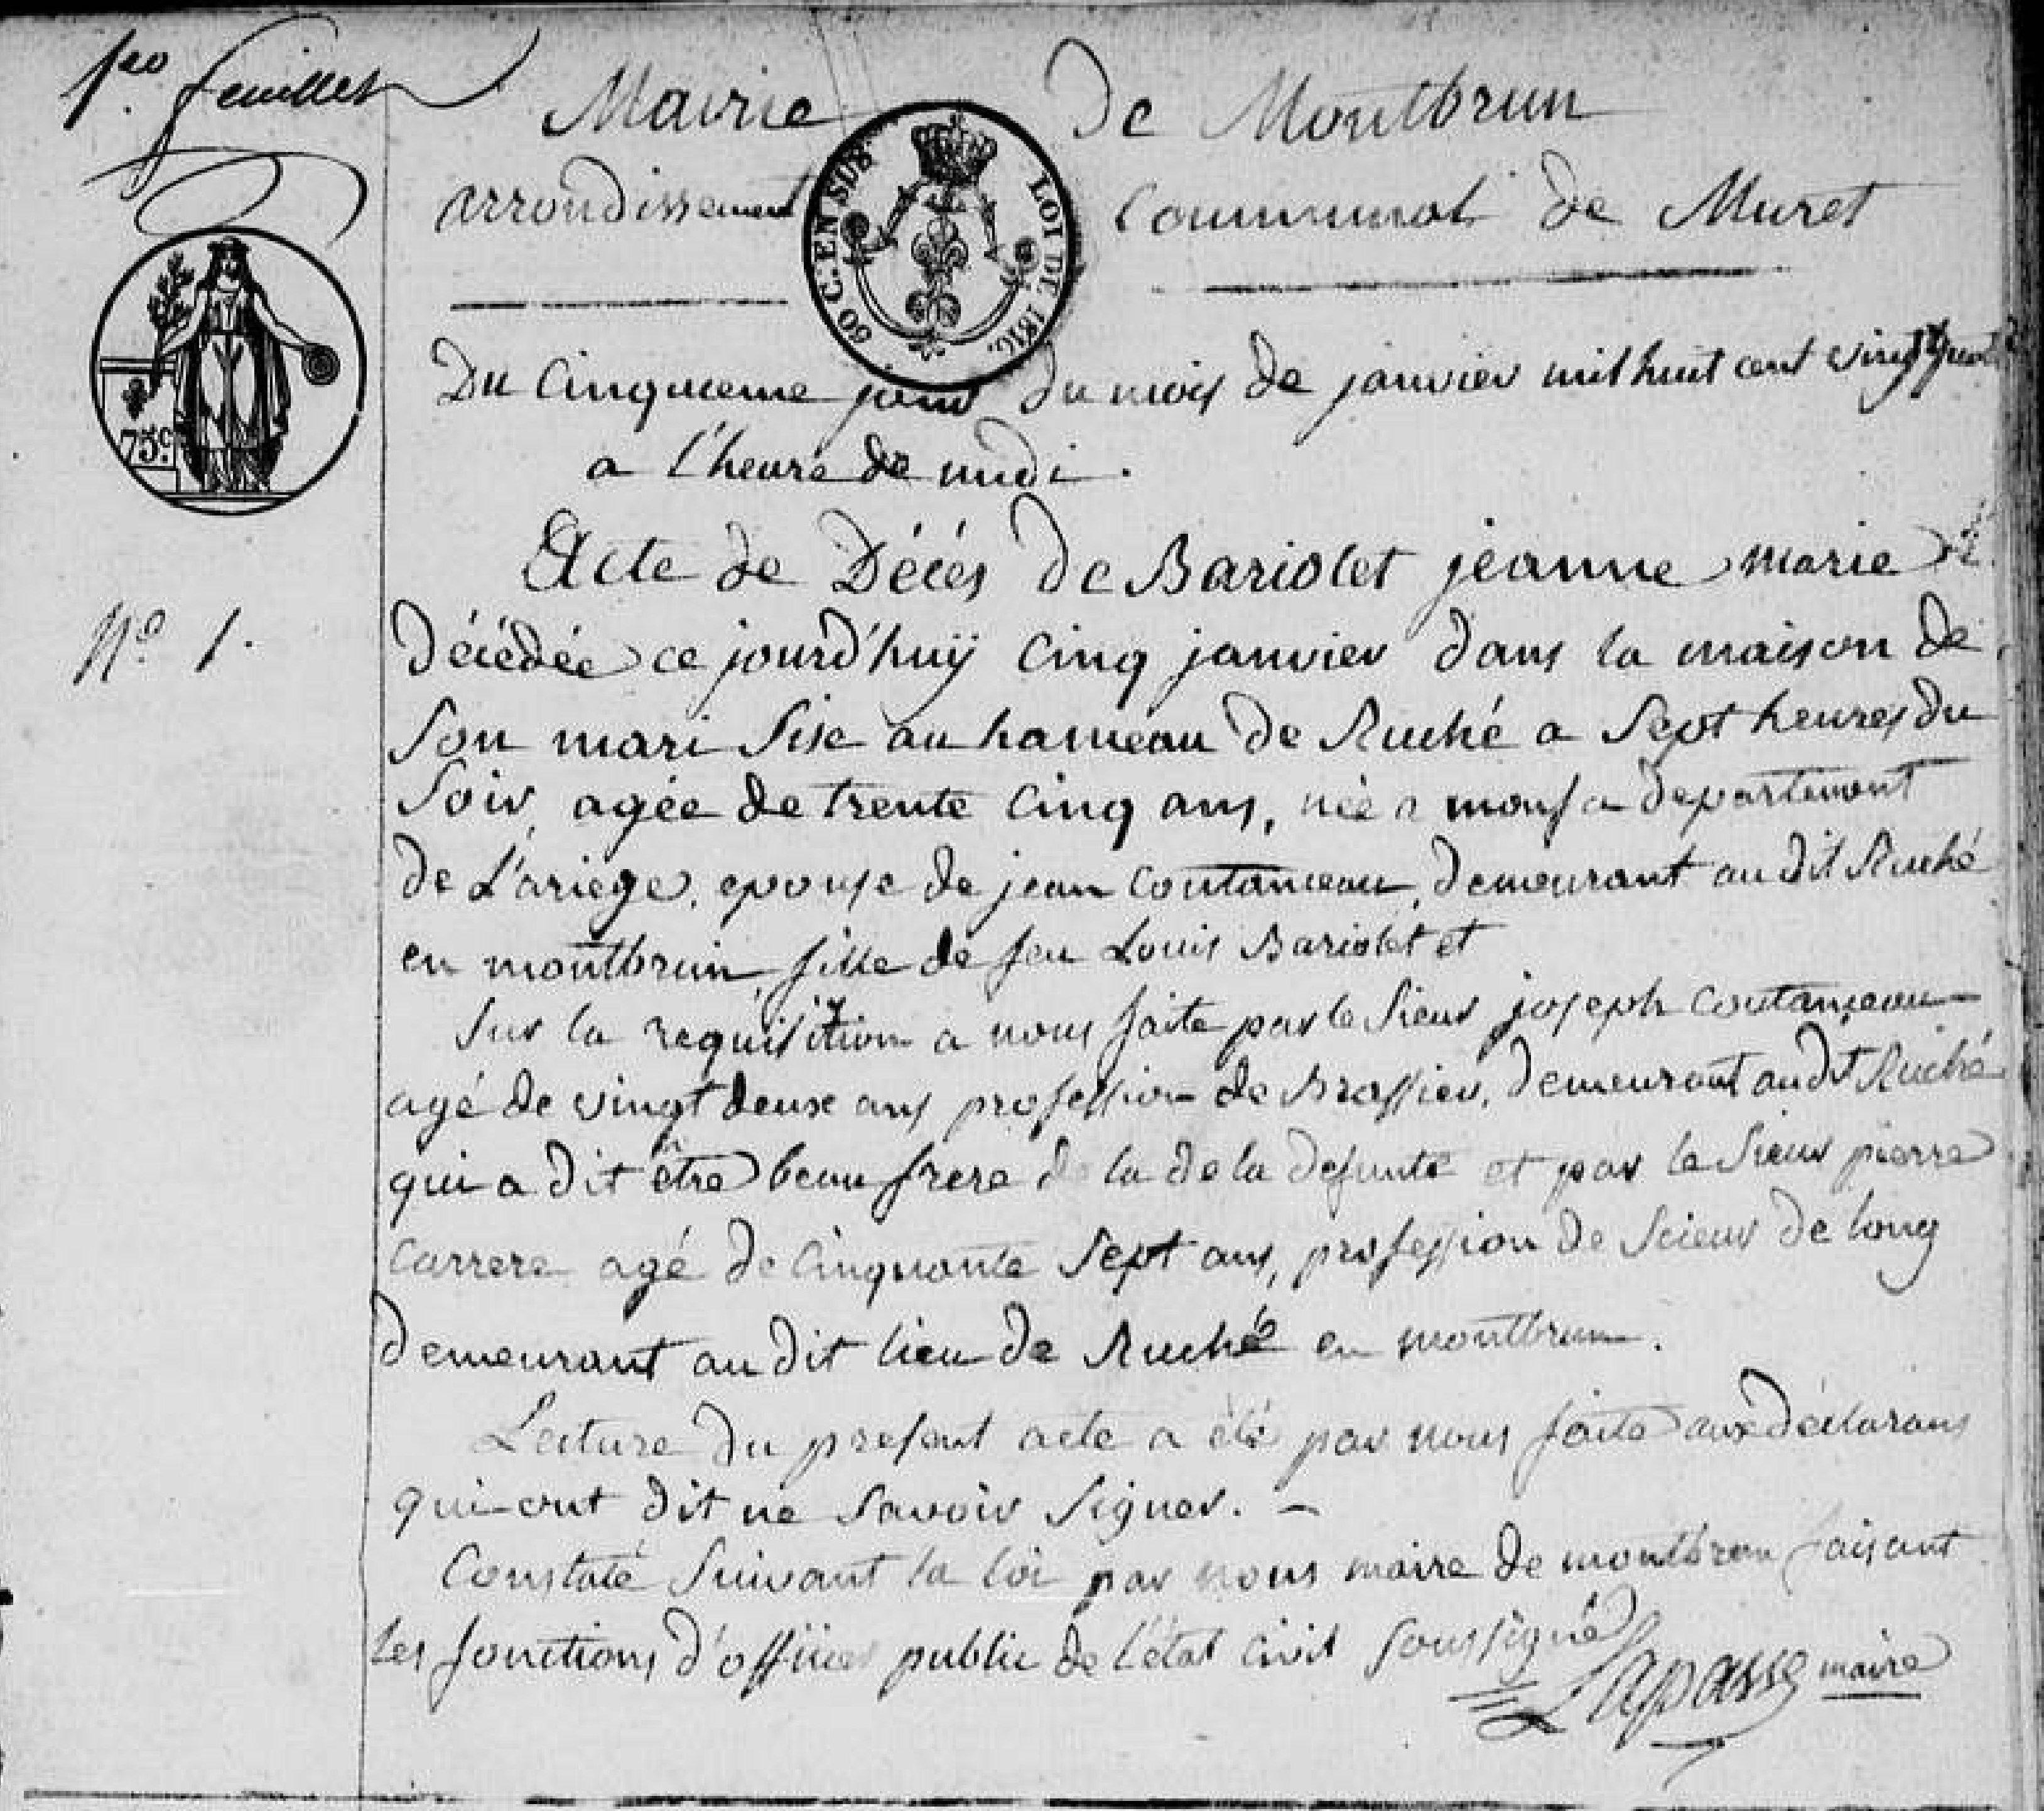 1er feuillet
Mairie de Montbrun
arrondissement Communal de Muret
60 C. EN SUS LOI DE 1816.
75c.
Du Cinquieme jour du mois de janvier mil huit cent vingt
a l'heure de midi.
Acte de Décés de Bariolet jeanne marie
N° 1.
décédée ce jourd'huÿ Cinq janvier dans la maison de
son mari sise au hameau de Ruché a sept heures du
soir, agée de trente cinq ans, née a monfa departement
de L'ariege, epouse de jean Coutanceau, demeurant au dit Ruché
en montbrun, fille de feu Louis Bariolet et
Sur la requisition a nous faite par le sieur joseph Coutanceau
agé de vingt deux ans profession de Brassier, demeurant au dt Ruché
qui a dit être beau frere de la de la defunte et par le sieur pierre
Carrere agé de Cinquante sept ans, profession de scieur de long
demeurant au dit lieu de Ruché en montbrun.
Lecture du present acte a été par nous faite aux déclarans
qui ont dit ne savoir signer. -
Constaté suivant la loi par nous maire de montbrun faisant
les fonctions d'officier public de l'état civil soussigné
Lapasse maire